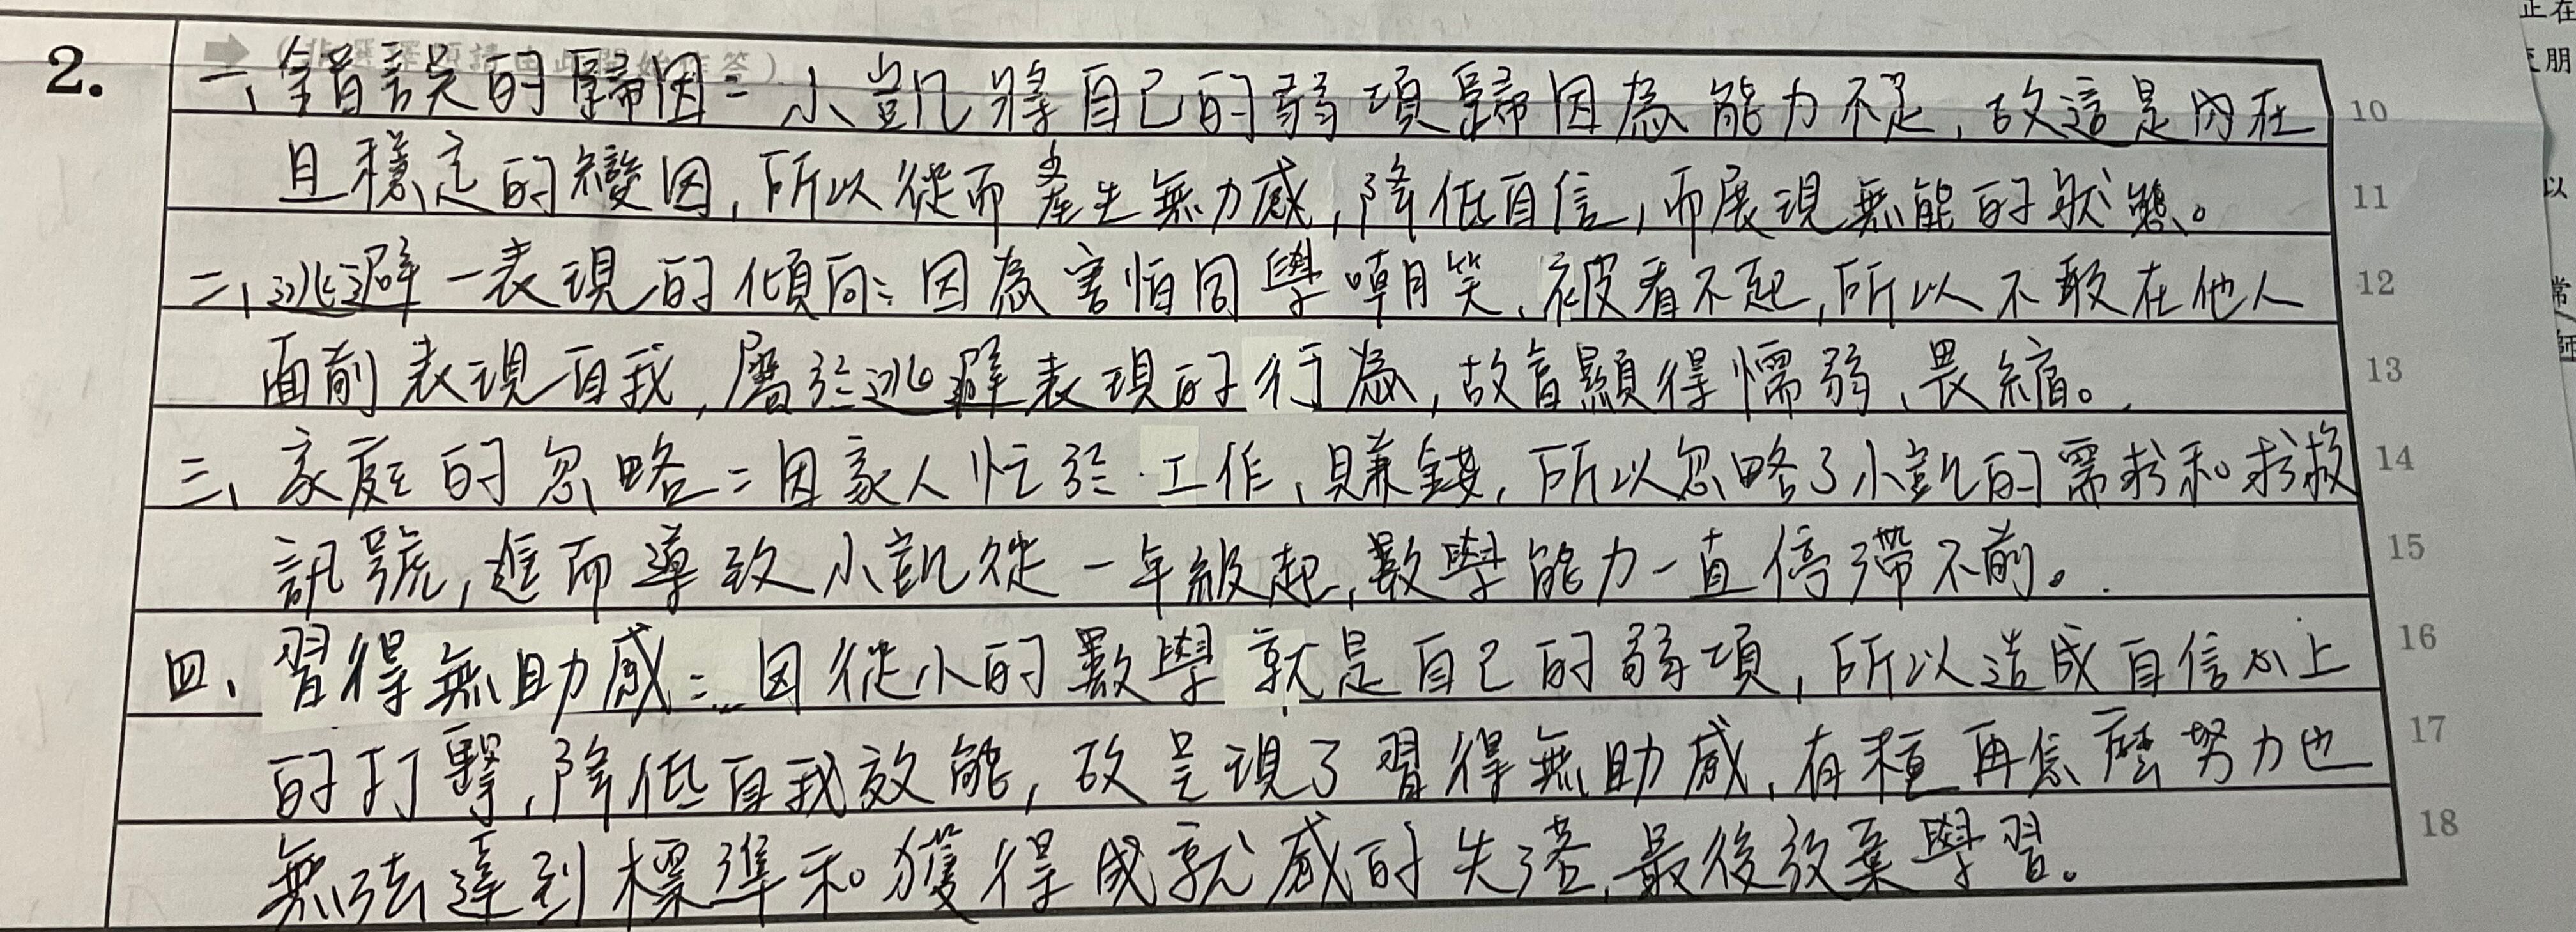 正在
2.
一、錯誤的歸因：小凱將自己的弱項歸因為能力不足，故這是內在 10
朋
且穩定的變因，所以從而產生無力感，降低自信，而展現無能的狀態。 11
以
二、逃避－表現的傾向：因為害怕同學嘲笑、被看不起，所以不敢在他人 12
常
面前表現自我，屬於逃避表現的行為，故會顯得懦弱、畏縮。 13
師
三、家庭的忽略：因家人忙於工作、賺錢，所以忽略了小凱的需求和求救 14
訊號，進而導致小凱從一年級起，數學能力一直停滯不前。 15
四、習得無助感：因從小的數學就是自己的弱項，所以造成自信心上 16
的打擊，降低自我效能，故呈現了習得無助感，有種再怎麼努力也 17
無法達到標準和獲得成就感的失落，最後放棄學習。 18